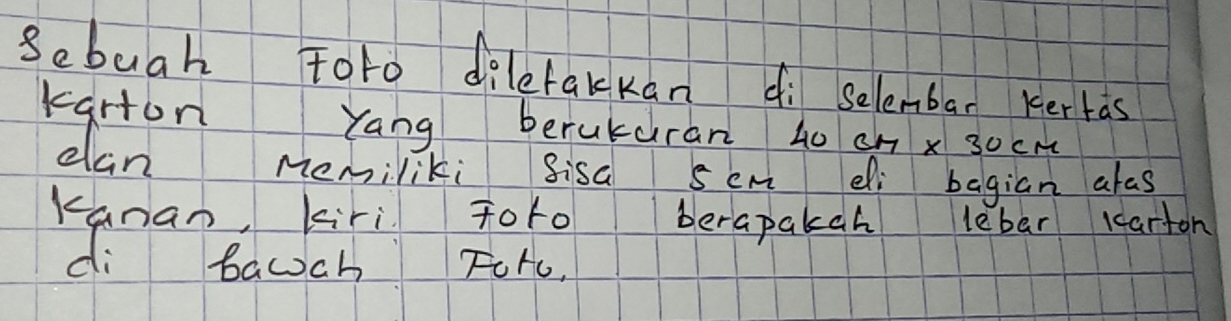 Sebuah Foto diletakkan di selembar kertas
karton yang berukuran 40 cm x 30 cm
dan memiliki sisa 5 cm di bagian atas
kanan, kiri. Foto berapakah lebar karton
di bawah Foto.